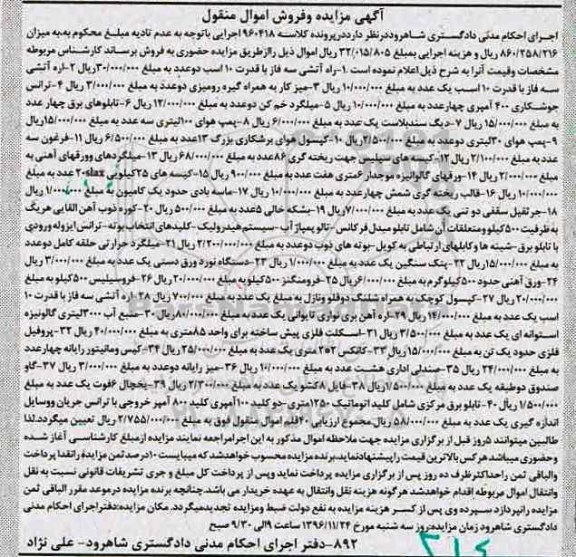 آگهی مزایده وفروش اموال منقول
اجرای احکام مدنی دادگستری شاهرود درنظر دارد درپرونده کلاسه ۹۶۰۴۱۸ اجرایی باتوجه به عدم تادیه مبلغ محکوم به،به میزان
۸۶۰/۲۵۸/۲۱۶ ریال و هزینه اجرایی بمبلغ ۳۲/۰۱۵/۸۰۵ ریال اموال ذیل رااز طریق مزایده حضوری به فروش برساند کارشناس مربوطه
مشخصات وقیمت آنرا به شرح ذیل اعلام نموده است .۱-راه آتشی سه فاز با قدرت ۱۰ اسب دوعدد به مبلغ ۳۰/۰۰۰/۰۰۰ریال ۲-اره آتشی
سه فاز با قدرت ۱۰ اسب یک عدد به مبلغ ۱۰/۰۰۰/۰۰۰ ریال ۳-میز کار به همراه گیره رومیزی دوعدد به مبلغ ۳/۰۰۰/۰۰۰ ریال ۴-ترانس
جوشکاری ۴۰۰ آمپری چهارعدد به مبلغ ۱۰/۰۰۰/۰۰۰ ریال ۵-میلگرد خم کن دوعدد به مبلغ ۱۲/۰۰۰/۰۰۰ ریال ۶-تابلوهای برق چهار عدد
به مبلغ ۱۵/۰۰۰/۰۰۰ ریال ۷-دیگ سندبلاست یک عدد به مبلغ ۶/۰۰۰/۰۰۰ ریال ۸-پمپ هوای ۱۰۰لیتری سه عدد به مبلغ ۱۵/۰۰۰/۰۰۰ریال
۹-پمپ هوای ۳۰لیتری دوعدد به مبلغ ۲/۵۰۰/۰۰۰ ریال ۱۰-کپسول هوای برشکاری بزرگ ۱۳عدد به مبلغ ۶/۵۰۰/۰۰۰ ریال ۱۱-فرغون سه
عدد به مبلغ ۲/۱۰۰/۰۰۰ ریال ۱۲-کیسه های سیلیس جهت ریخته گری ۸۶عدد به مبلغ ۶۸/۰۰۰/۰۰۰ ریال ۱۳-میلگردهای وورقهای آهنی به
مبلغ ۲/۰۰۰/۰۰۰ ریال ۱۴-ورقهای گالوانیزه موجدار ۶متری هفت عدد به مبلغ ۹۰۰/۰۰۰ ریال ۱۵-کیسه های ۲۵کیلویی slax ۲۰عدد به مبلغ
۱۰/۰۰۰/۰۰۰ ریال ۱۶-قالب ریخته گری شمش چهارعدد به مبلغ ۱۰/۰۰۰/۰۰۰ ریال ۱۷-ماسه بادی حدود یک کامیون به مبلغ ۱/۰۰۰/۰۰۰ ریال
۱۸-جرثقیل سقفی دو تنی یک عدد به مبلغ ۷/۰۰۰/۰۰۰ریال ۱۹-بشکه خالی ۵عدد به مبلغ ۵۰۰/۰۰۰ ریال ۲۰-کوره ذوب آهن القایی هریک
به ظرفیت ۵۰۰کیلو ومتعلقات آن شامل تابلو مبدل فرکانس -تالو پمپاز آب -سیستم هیدرولیک -کلیدهای انتخاب بوته-ترانس ایزوله ورودی
با تابلو برق -شینه ها وکابلهای ارتباطی به کویل -بوته های ذوب دوعدد به مبلغ ۲/۲۰۰/۰۰۰/۰۰۰ ریال ۲۱-میلگرد حرارتی حلقه کامل دوعدد
به مبلغ ۱۵/۰۰۰/۰۰۰ریال ۲۲-پتک سنگین یک عدد به مبلغ ۱/۰۰۰/۰۰۰ ریال ۲۳-دستگاه نورد ورق دستی یک عدد به مبلغ ۳/۰۰۰/۰۰۰ ریال
۲۴-ورق آهنی حدود ۵۰۰کیلوگرم به مبلغ ۶/۰۰۰/۰۰۰ریال ۲۵-فرومنگنز ۵۰۰کیلو به مبلغ ۲۰/۰۰۰/۰۰۰ ریال ۲۶-فروسیلیس ۵۰۰کیلو به مبلغ
۲۰/۰۰۰/۰۰۰ ریال ۲۷-کپسول کوچک به همراه شلنگ دوقلو ونازل به مبلغ یک عدد به مبلغ ۷۰۰/۰۰۰ ریال ۲۸-اره آتشی سه فاز با قدرت ۱۰
اسب یک عدد به مبلغ ۱۴/۰۰۰/۰۰۰ ریال ۲۹-اره آهن بری نواری تایوانی یک عدد به مبلغ ۸۰/۰۰۰/۰۰۰ریال ۳۰-منبع آب ۳۰۰۰لیتری گالوانیزه
استوانه ای یک عدد به مبلغ ۳/۵۰۰/۰۰۰ ریال ۳۱-اسکلت فلزی پیش ساخته برای واحد ۸۵متری به مبلغ ۴۰/۰۰۰/۰۰۰ ریال ۳۲-پروفیل
فلزی حدود یک تن به مبلغ ۱۵/۰۰۰/۰۰۰ریال ۳۳-کانکس ۲*۳ متری یک عدد به مبلغ ۲۵/۰۰۰/۰۰۰ ریال ۳۴-کیس ومانیتور رایانه چهارعدد
به مبلغ ۲۴/۰۰۰/۰۰۰ ریال ۳۵-صندلی اداری هشت عدد به مبلغ ۱۰/۰۰۰/۰۰۰ ریال ۳۶-میز رایانه دوعدد به مبلغ ۳/۰۰۰/۰۰۰ ریال ۳۷-گاو
صندوق دوطبقه یک عدد به مبلغ ۱/۵۰۰/۰۰۰ ریال ۳۸-فایل ۸کشو یک عدد به مبلغ ۲/۳۰۰/۰۰۰ ریال ۳۹-یخچال ۶فوت یک عدد به مبلغ
۱/۵۰۰/۰۰۰ ریال ۴۰-تابلو برق مرکزی شامل کلید اتوماتیک ۱۲۵۰متری-دو کلید ۱۰۰آمپری کلید ۸۰۰ آمپر خروجی با ترانس جریان ووسایل
اندازه گیری یک عدد به مبلغ ۵۸/۰۰۰/۰۰۰ ریال مجموع ارزیابی ۴۰قلم اموال منقول فوق به مبلغ ۲/۷۵۵/۰۰۰/۰۰۰ ریال تعیین میگردد.لذا
طالبین میتوانند ۵روز قبل از برگزاری مزایده جهت ملاحظه اموال مذکور به این اجرا مراجعه نمایند مزایده ازمبلغ کارشناسی آغاز شده
وحضوری میباشد هرکس بالاترین قیمت راپیشنهادنماید،برنده مزایده محسوب خواهدشد که میبایست ۱۰درصد ثمن مزایدهٔ رانقدا پرداخت
والباقی ثمن راحداکثر ظرف ده روز پس از برگزاری مزایده پرداخت نماید وپس از پرداخت کل مبلغ و جری تشریفات قانونی نسبت به نقل
وانتقال اموال مربوطه اقدام خواهدشد هرگونه هزینه نقل وانتقال به عهده خریدار می باشد.چنانچه برنده مزایده درموعد مقرر الباقی ثمن
مزایده رانپردازد سپرده وی پس از کسر هزینه مزایده به نفع دولت ضبط ومزایده تجدید میگردد. مکان مزایده:دفتراجرای احکام مدنی
دادگستری شاهرود زمان مزایده:روز سه شنبه مورخ ۱۳۹۶/۱۱/۲۴ ساعت ۹الی ۹/۳۰ صبح
۸۹۲-دفتر اجرای احکام مدنی دادگستری شاهرود- علی نژاد